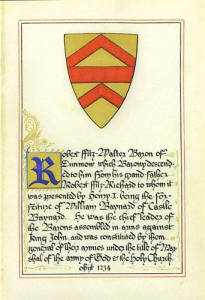 Robert ffitz-Walter Baron of
Dunmow which Barony descend-
ed to him from his grand-father
Robert ffitz-Richard to whom it
was presented by Henry I. being the for-
feiture of William Baynard of Castle
Baynard. He was the chief leader of
the Barons assembled in arms against
King John and was constituted by them
general of their armies under the title of Mar-
shal of the army of God & the Holy Church
obijt 1234